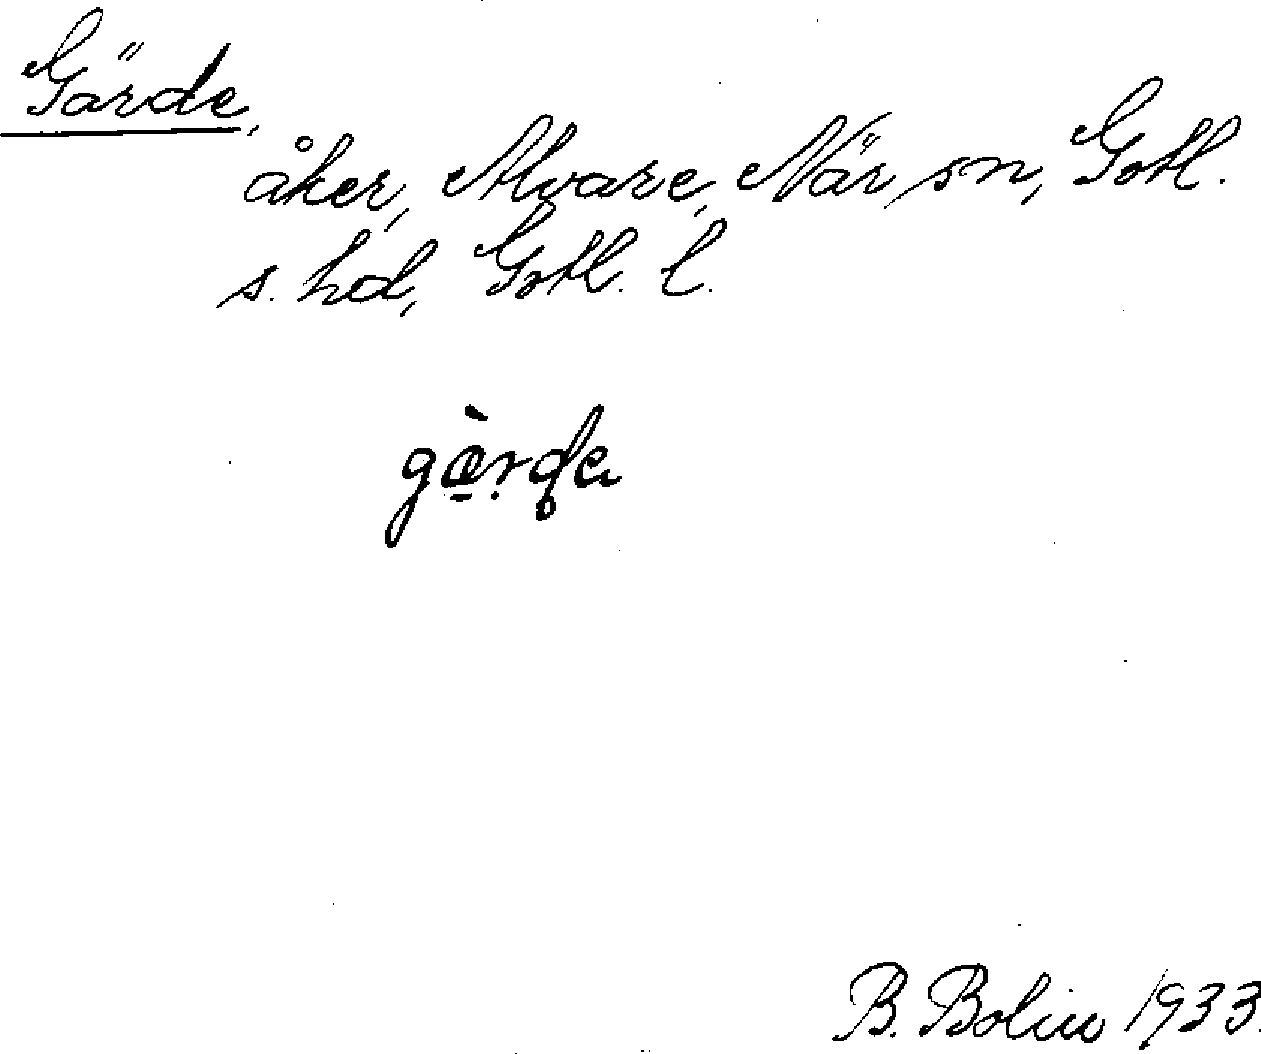 Gärde,
åker, Alvare, När sn, Gotl.
s. hd, Gotl. l.
gæ̀rde
B. Bolin 1933.